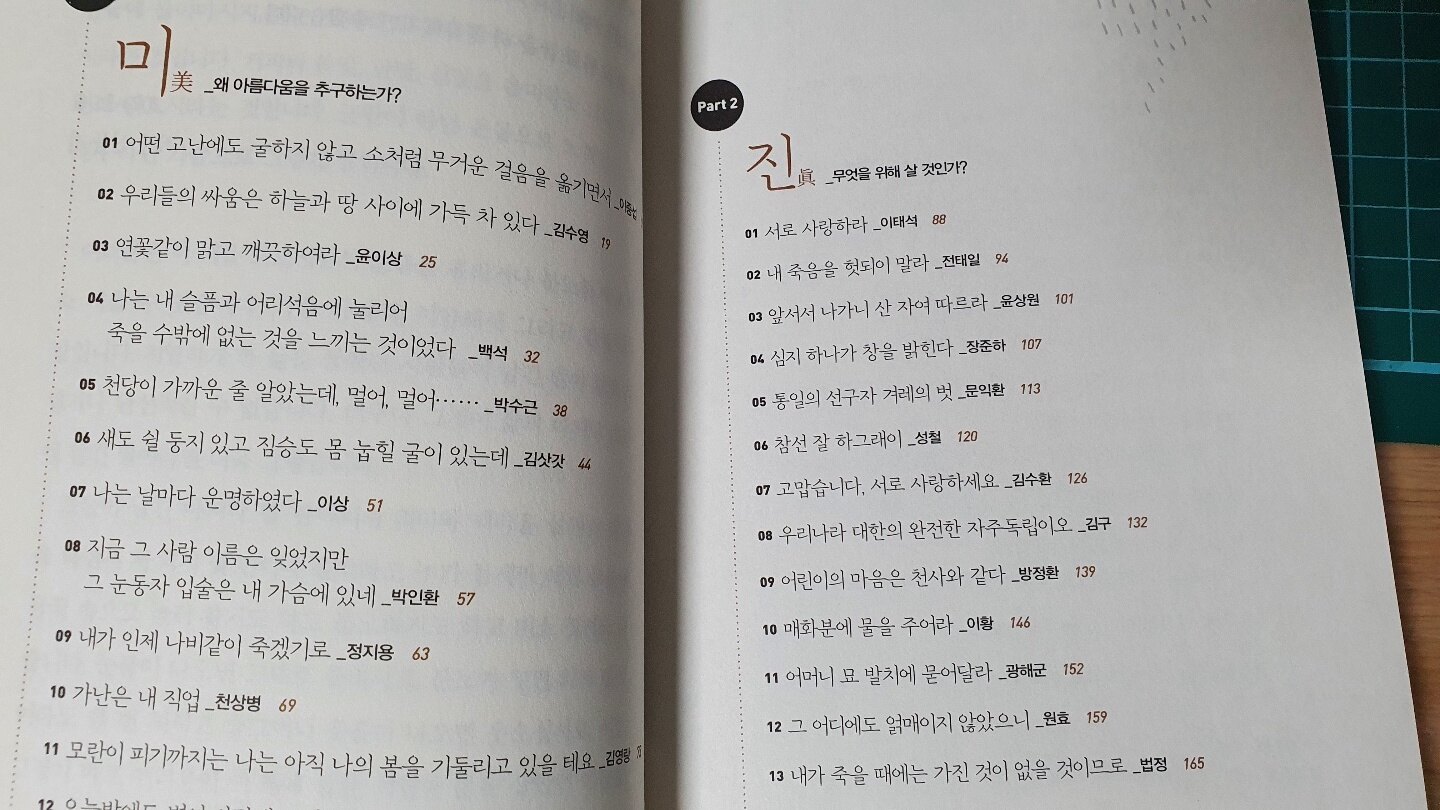 미 美 _왜 아름다움을 추구하는가?
01 어떤 고난에도 굴하지 않고 소처럼 무거운 걸음을 옮기면서
02 우리들의 싸움은 하늘과 땅 사이에 가득 차 있다 _김수영 19
03 연꽃같이 맑고 깨끗하여라 _윤이상 25
04 나는 내 슬픔과 어리석음에 눌리어
죽을 수밖에 없는 것을 느끼는 것이었다 _백석 32
05 천당이 가까운 줄 알았는데, 멀어, 멀어…… _박수근 38
06 새도 쉴 둥지 있고 짐승도 몸 눕힐 굴이 있는데 _김삿갓 44
07 나는 날마다 운명하였다 _이상 51
08 지금 그 사람 이름은 잊었지만
그 눈동자 입술은 내 가슴에 있네 _박인환 57
09 내가 인제 나비같이 죽겠기로 _정지용 63
10 가난은 내 직업 _천상병 69
11 모란이 피기까지는 나는 아직 나의 봄을 기둘리고 있을 테요 _김영랑
12
Part 2
진 眞 _무엇을 위해 살 것인가?
01 서로 사랑하라 _이태석 88
02 내 죽음을 헛되이 말라 _전태일 94
03 앞서서 나가니 산 자여 따르라 _윤상원 101
04 심지 하나가 창을 밝힌다 _장준하 107
05 통일의 선구자 겨레의 벗 _문익환 113
06 참선 잘 하그래이 _성철 120
07 고맙습니다, 서로 사랑하세요 _김수환 126
08 우리나라 대한의 완전한 자주독립이오 _김구 132
09 어린이의 마음은 천사와 같다 _방정환 139
10 매화분에 물을 주어라 _이황 146
11 어머니 묘 발치에 묻어달라 _광해군 152
12 그 어디에도 얽매이지 않았으니 _원효 159
13 내가 죽을 때에는 가진 것이 없을 것이므로 _법정 165